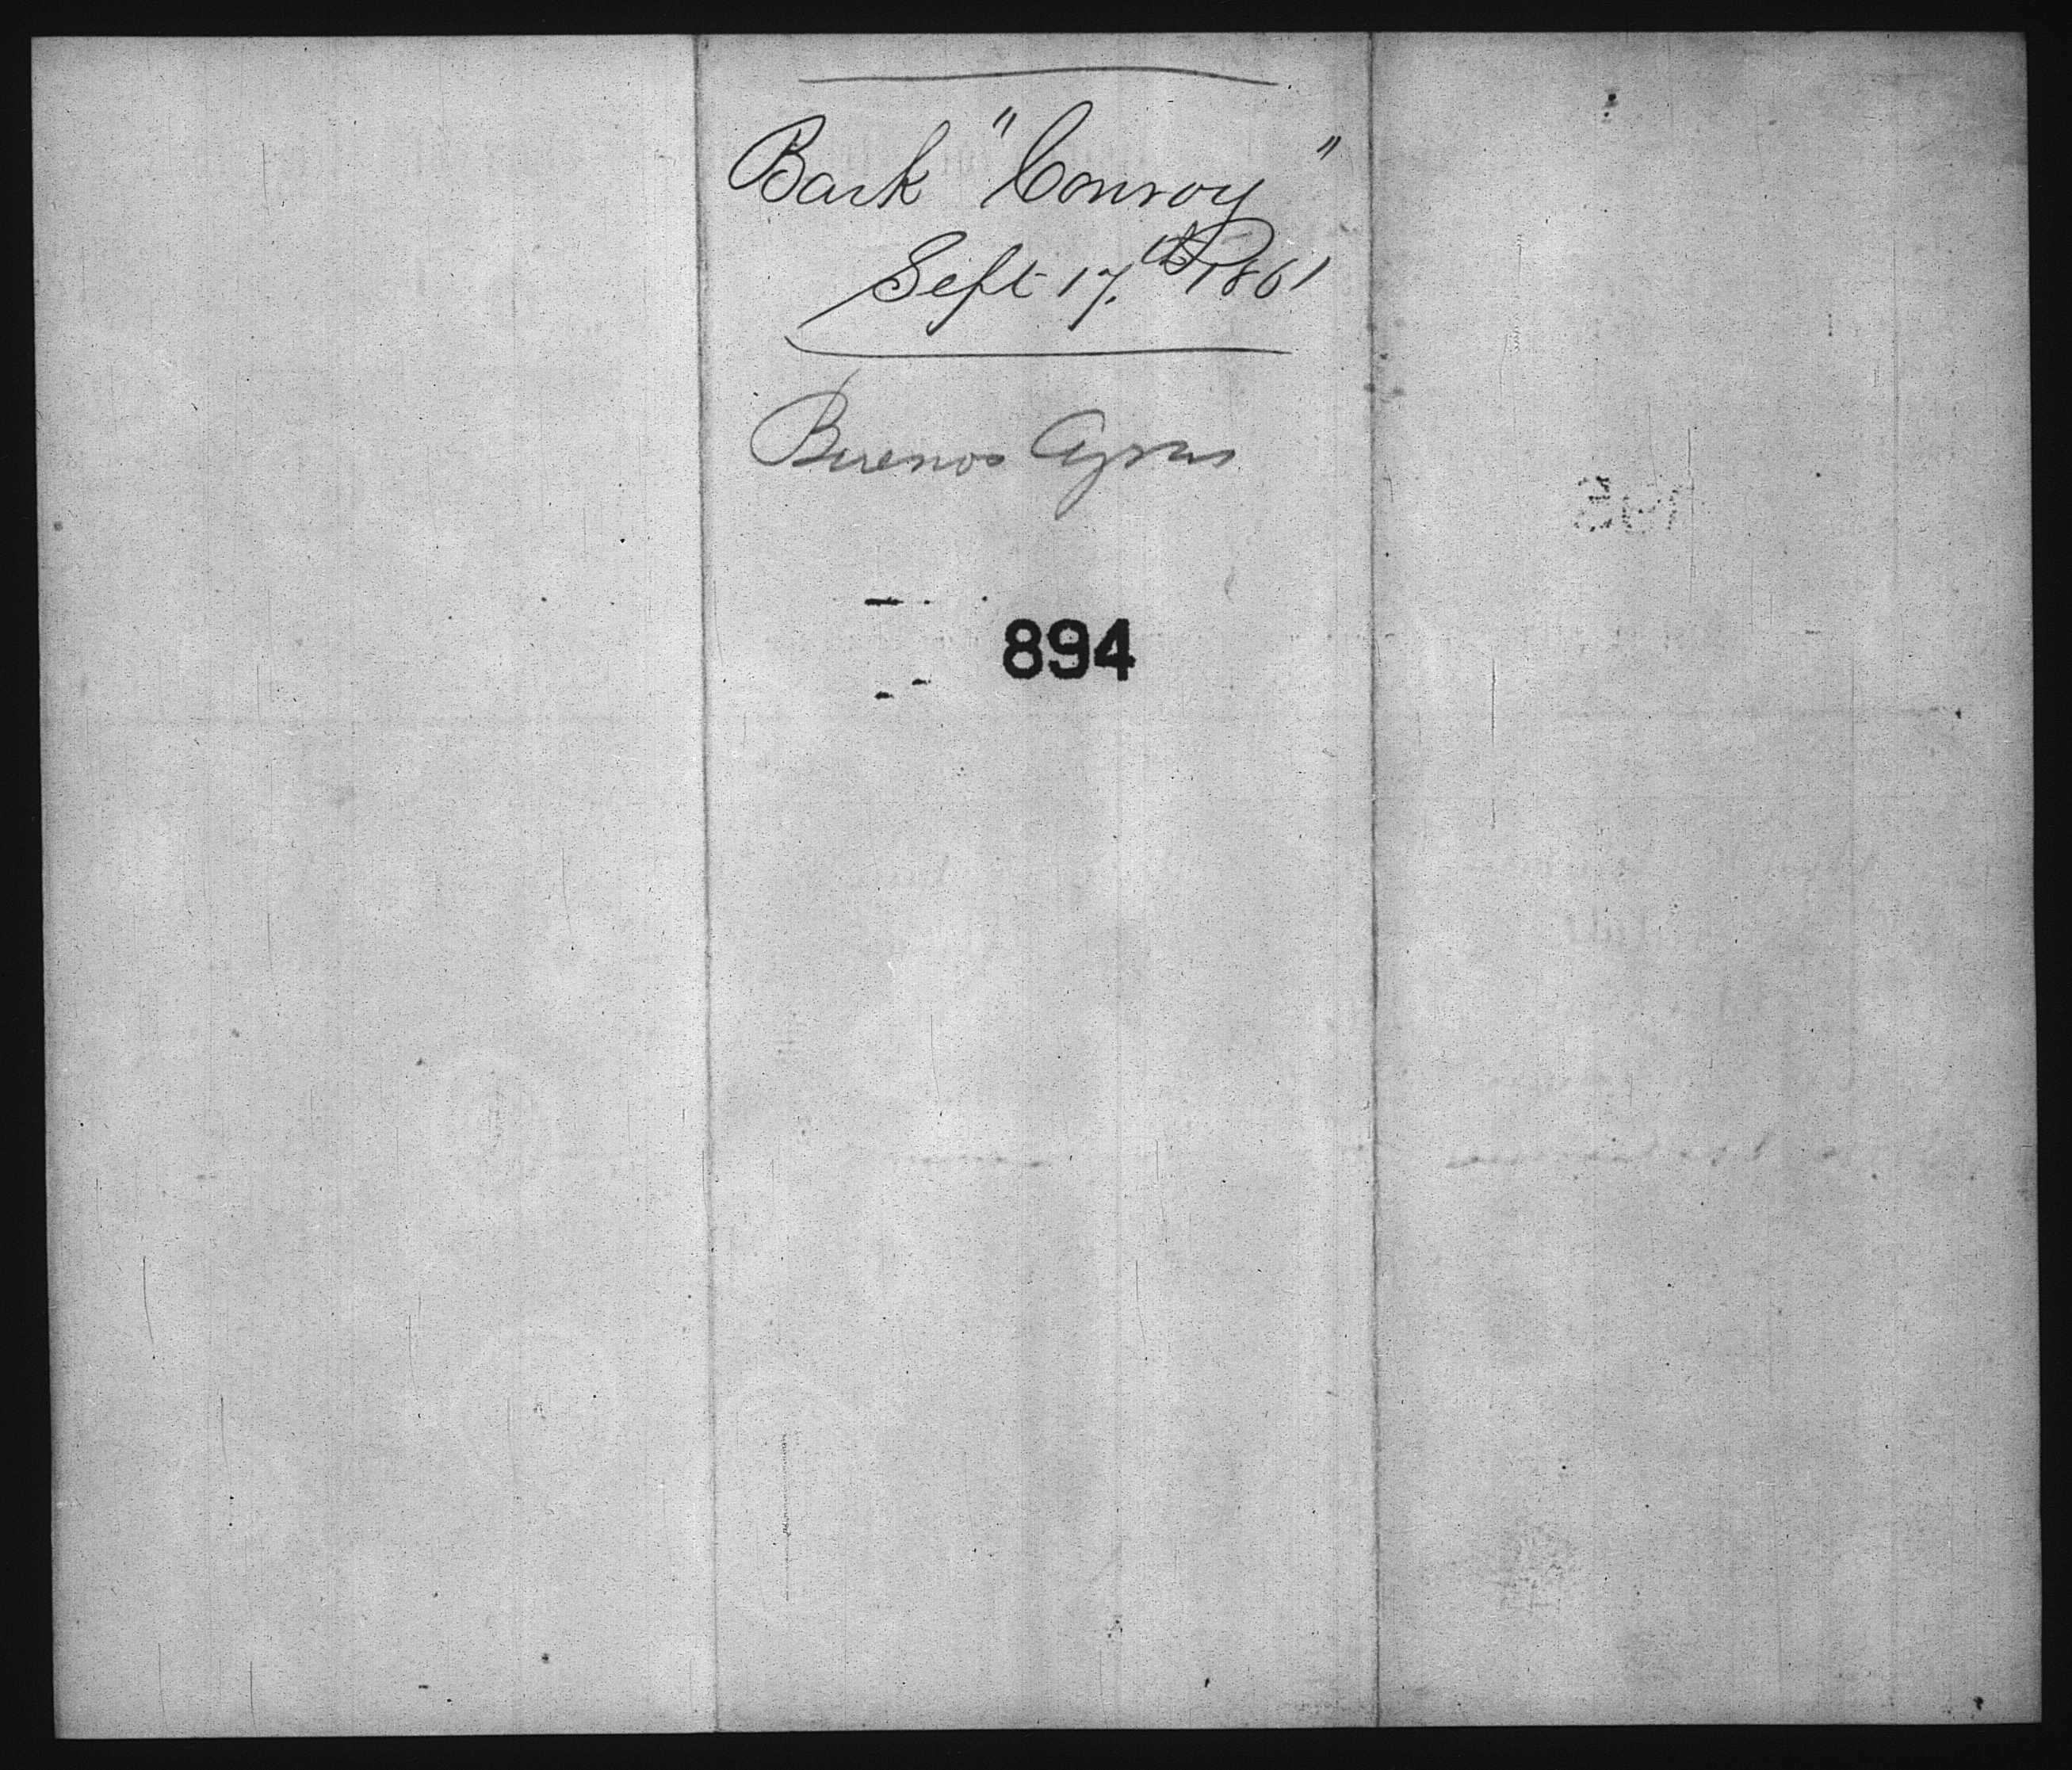 Bark "Conroy"
Sept 17.th 1861
Buenos Ayres
894